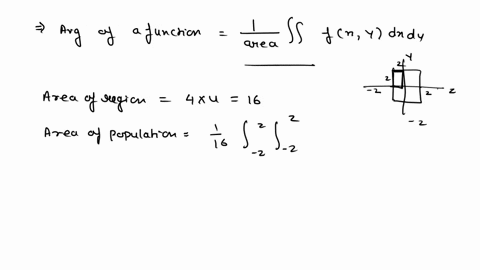 ⇒ Avg of a function = 1/area ∬ f(x, y) dx dy
Area of region = 4 x 4 = 16
Area of population = 1/16 ∫_{-2}^{2} ∫_{-2}^{2}
y
2
2
-2
2
x
-2